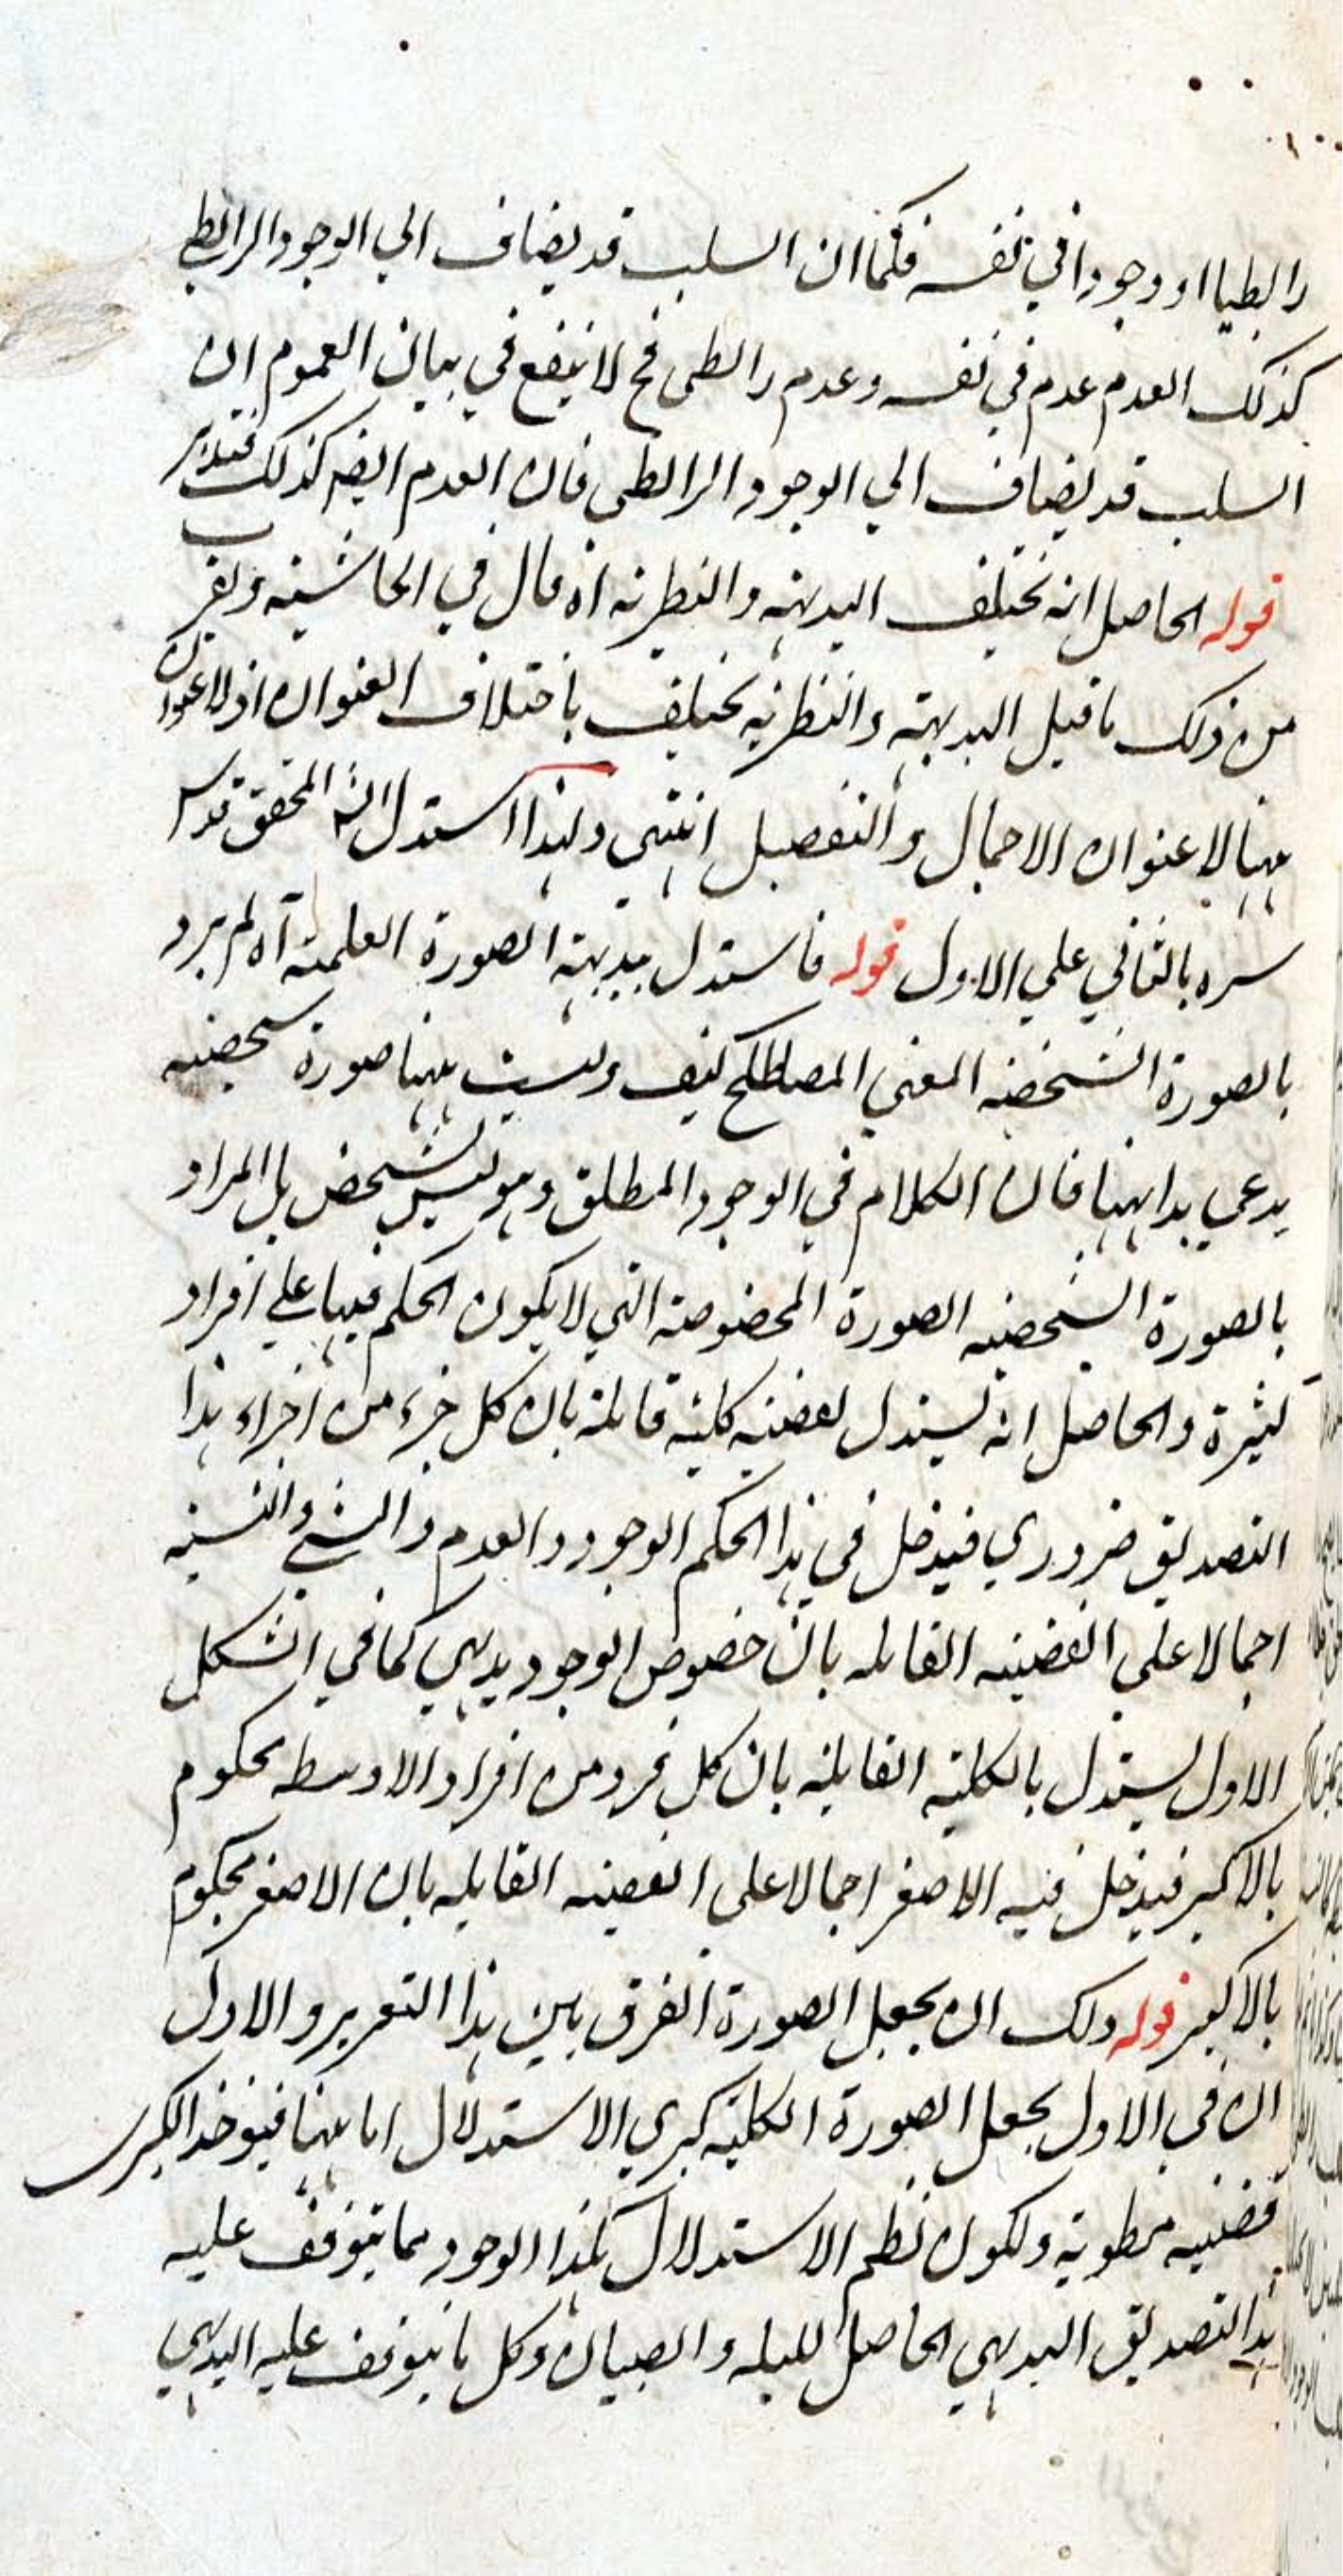 رابطيا او وجودا في نفسه فكما ان السلب قد يضاف الي الوجود الرابطي
كذلك العدم عدم في نفسه وعدم رابطي فح لا ينفع في بيان العموم ان
السلب قد يضاف الي الوجود الرابطي فان العدم ايضه كذلك فتدبر
قوله الحاصل انه يختلف البديهته والنظريه اه قال في الحاشيته ويقرب
من ذلك ما قيل البديهته والنظريه يختلف باختلاف العنوان اذ لا عنوان
ههنا الا عنوان الاجمال والتفصيل انتهي ولهذا استدل الشه المحقق قدس
سره بالثاني علي الاول قوله فاستدل ببديهته الصورة العلميته آه لم يرد
بالصورة الشخصيه المعني المصطلح كيف وليست ههنا صورة شخصيه
يدعي بداهتها فان الكلام في الوجود المطلق وهو ليس بشخص بل المراد
بالصورة الشخصيه الصورة المخصوصته التي لا يكون الحكم فيها علي افراد
كثيرة والحاصل انه يستدل بقضيه كليته قائلته بان كل جزء من اجزاء هذا
التصديق ضروري فيدخل في هذا الحكم الوجود والعدم والشي والنسبه
اجمالا علي القضيه القائله بان خصوص الوجود بديهي كما في الشكل
الاول يستدل بالكليته القايلته بان كل فرد من افراد الاوسط محكوم
بالاكبر فيدخل فيه الاصغر اجمالا علي القضيه القايله بان الاصغر محكوم
بالاكبر قوله ولك ان يجعل الصورة الفرق بين هذا التقرير والاول
ان في الاول يجعل الصورة الكليته كبري الاستدلال اما ههنا فيوخذ الكبرى
قضيه مطويته ويكون نظم الاستدلال هكذا الوجود مما يتوقف عليه
هذا التصديق البديهي الحاصل للبله والصبيان وكل ما يتوقف عليه البديهي